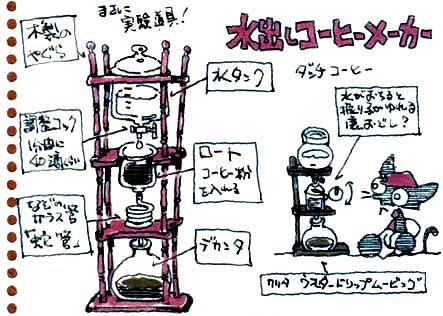 まさに
実験道具!
水出しコーヒーメーカー
木製の
やぐら
水タンク
ダッチコーヒー
調整コック
1分間に
40滴くらい
水がおちると
振り子がゆれる
ロート
コーヒー粉
を入れる
なぞの
ガラス管
「蛇管」
デカンタ
カリタ ウォータードリップムービング